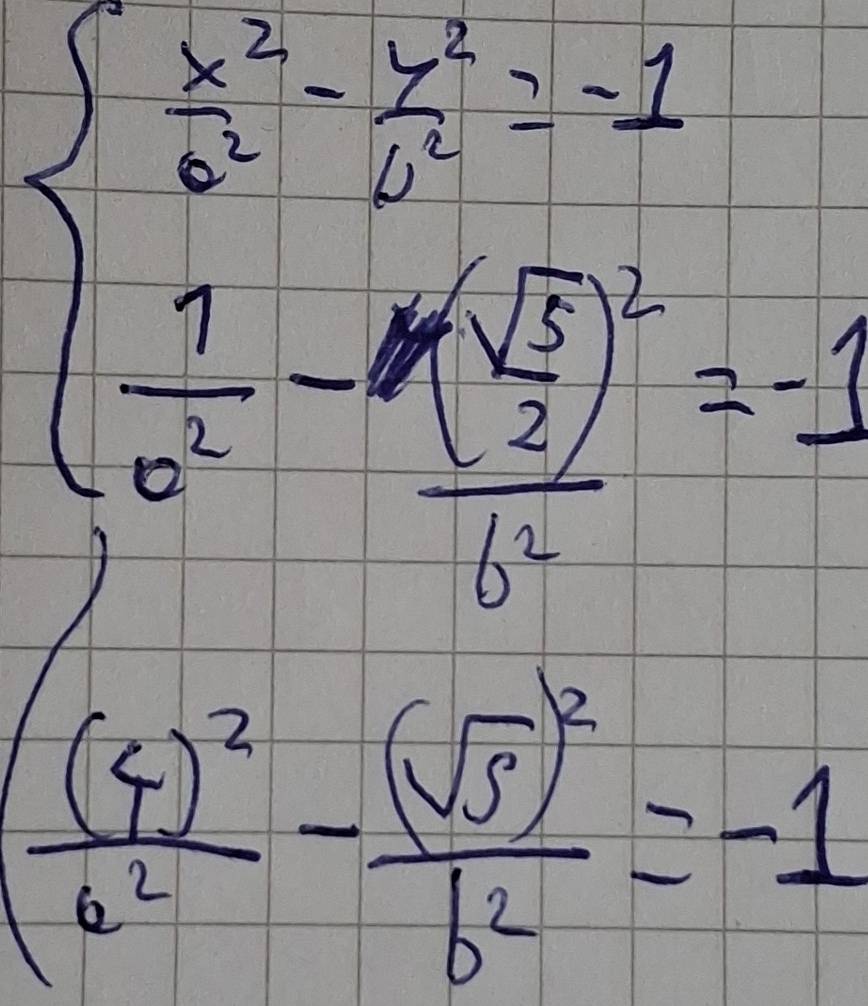 x²/a² - y²/b² = -1
1/a² - (√5/2)²/b² = -1
(4)²/a² - (√5)²/b² = -1